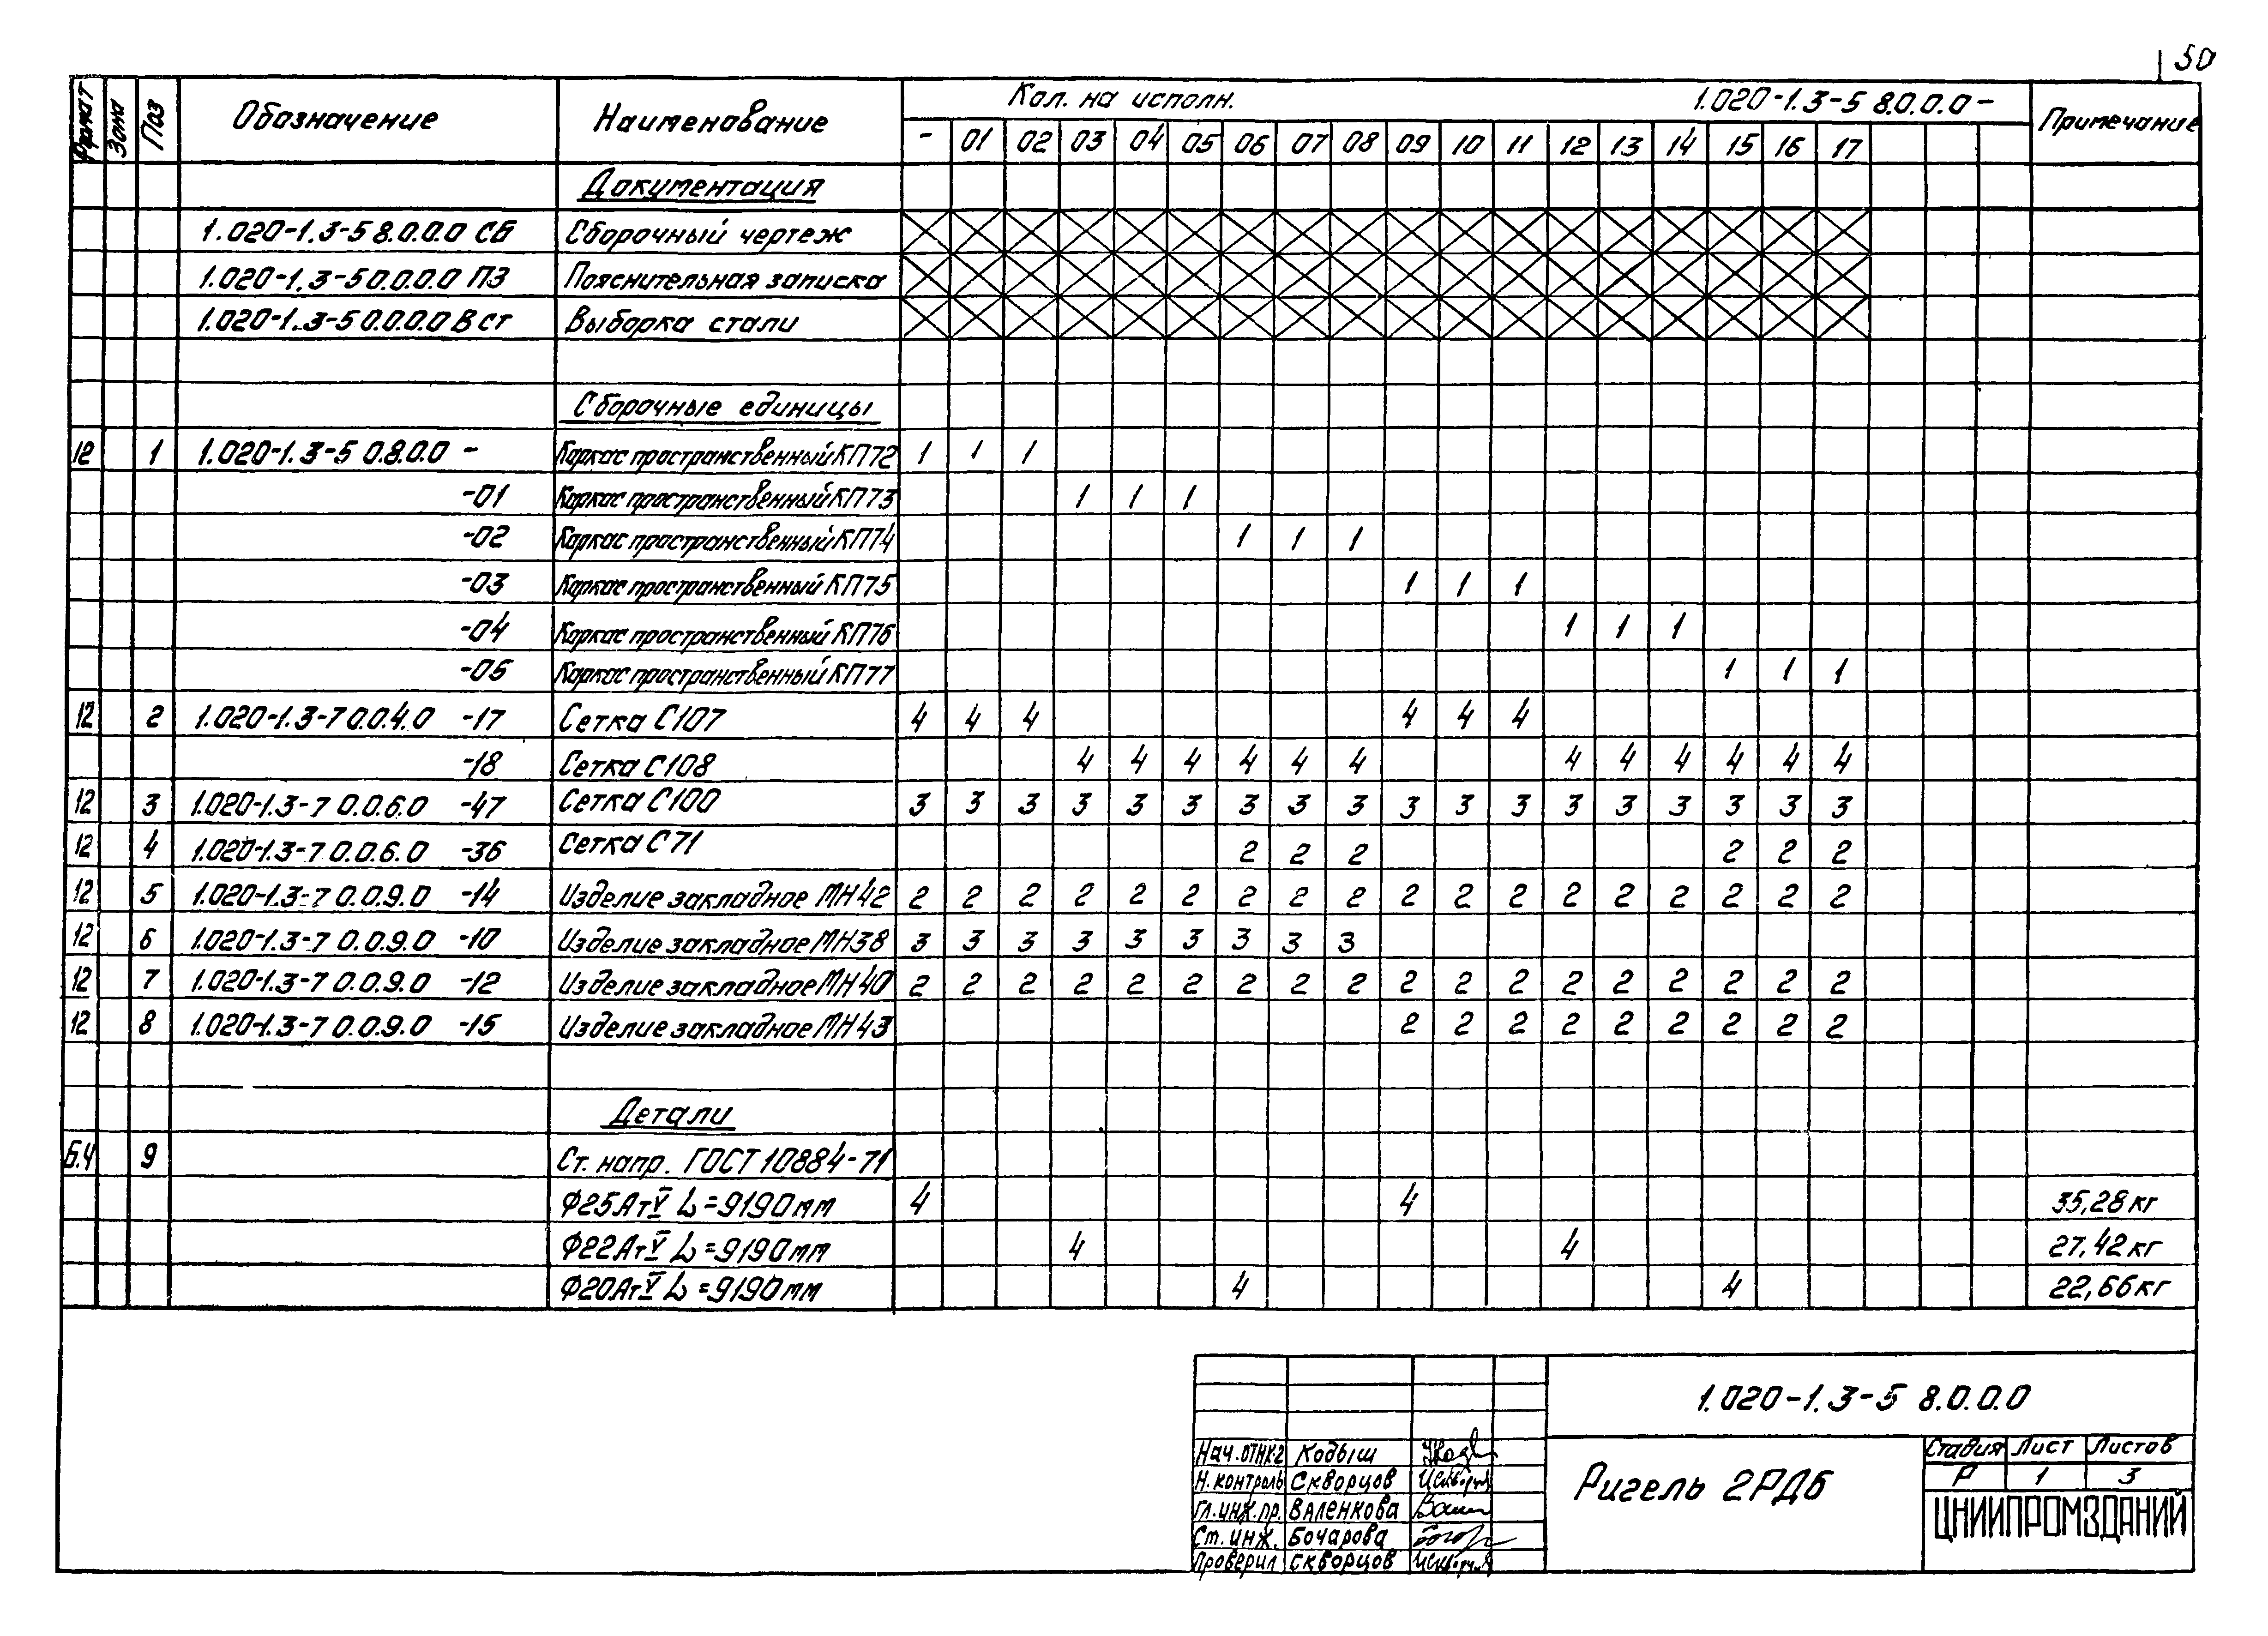 50
Формат Зона Поз Обозначение Наименование Кол. на исполн. 1.020-1.3-5 8.0.0.0- Примечание
- 01 02 03 04 05 06 07 08 09 10 11 12 13 14 15 16 17
Документация
1.020-1.3-5 8.0.0.0 СБ Сборочный чертеж
1.020-1.3-5 0.0.0.0 ПЗ Пояснительная записка
1.020-1.3-5 0.0.0.0 В ст Выборка стали
Сборочные единицы
12 1 1.020-1.3-5 0.8.0.0 - Каркас пространственный КП72 1 1 1
-01 Каркас пространственный КП73 1 1 1
-02 Каркас пространственный КП74 1 1 1
-03 Каркас пространственный КП75 1 1 1
-04 Каркас пространственный КП76 1 1 1
-05 Каркас пространственный КП77 1 1 1
12 2 1.020-1.3-7 0.0.4.0 -17 Сетка С107 4 4 4 4 4 4
-18 Сетка С108 4 4 4 4 4 4 4 4 4 4 4 4
12 3 1.020-1.3-7 0.0.6.0 -47 Сетка С100 3 3 3 3 3 3 3 3 3 3 3 3 3 3 3 3 3 3
12 4 1.020-1.3-7 0.0.6.0 -36 Сетка С71 2 2 2 2 2 2
12 5 1.020-1.3-7 0.0.9.0 -14 Изделие закладное МН42 2 2 2 2 2 2 2 2 2 2 2 2 2 2 2 2 2 2
12 6 1.020-1.3-7 0.0.9.0 -10 Изделие закладное МН38 3 3 3 3 3 3 3 3 3
12 7 1.020-1.3-7 0.0.9.0 -12 Изделие закладное МН40 2 2 2 2 2 2 2 2 2 2 2 2 2 2 2 2 2 2
12 8 1.020-1.3-7 0.0.9.0 -15 Изделие закладное МН43 2 2 2 2 2 2 2 2 2
Детали
Б.Ч 9 Ст. напр. ГОСТ 10884-71
Ф25АтV L=9190мм 4 4 35,28кг
Ф22АтV L=9190мм 4 4 27,42кг
Ф20АтV L=9190мм 4 4 22,66кг
1.020-1.3-5 8.0.0.0
Нач.ОТНК-2 Кодыш
Н.контроль Скворцов
Гл.инж.пр. Валенкова
Ст.инж. Бочарова
Проверил Скворцов
Ригель 2РД6
Стадия Лист Листов
Р 1 3
ЦНИИПРОМЗДАНИЙ